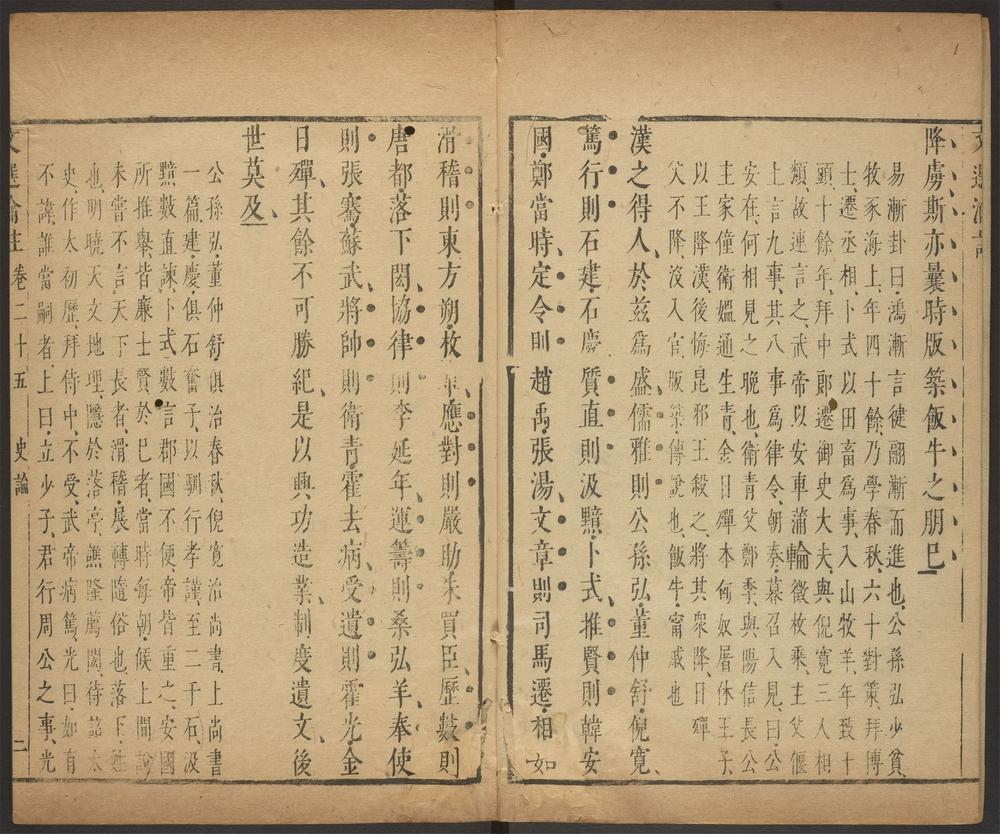 降虜斯亦曩時版築飯牛之朋已
易漸卦曰鴻漸言徒翮漸而進也公孫弘少貧
牧豕海上年四十餘乃學春秋六十對策拜博
士遷丞相卜式以田畜為事入山牧羊年致十
頭十餘年拜中郎遷御史大夫與倪寬三人相
類故連言之武帝以安車蒲輪徵枚乘主父偃
上言九事其八事為律令朝奏暮召入見曰公
安在何相見之晚也衛青父鄭季與陽信長公
主家僮衛媼通生青金日磾本匈奴屠休王子
以王降漢後悔昆邪王殺之將其衆降日磾
父不降沒入官版築傅說也飯牛甯戚也
漢之得人於茲為盛儒雅則公孫弘董仲舒倪寬
篤行則石建石慶質直則汲黯卜式推賢則韓安
國鄭當時定令則趙禹張湯文章則司馬遷相如
滑稽則東方朔枚皋應對則嚴助朱買臣歷數則
唐都落下閎協律則李延年運籌則桑弘羊奉使
則張騫蘇武將帥則衛青霍去病受遺則霍光金
日磾其餘不可勝紀是以興功造業制度遺文後
世莫及
公孫弘董仲舒俱治春秋倪寬治尚書上尚書
一篇建慶俱石奮子以馴行孝謹至二千石汲
黯數直諫卜式數言郡國不便帝皆重之安國
所推舉皆廉士賢於已者當時每朝候上間說
未嘗不言天下長者滑稽展轉隨俗也落下姓
也明曉天文地理隱於落亭譙隆薦閎待詔太
史作太初歷拜侍中不受武帝病篤光曰如有
不諱誰當嗣者上曰立少子君行周公之事光
卷二十五 史論 二